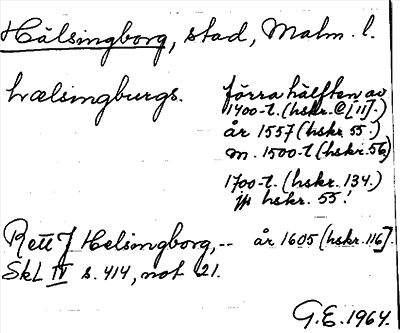 Hälsingborg, stad, Malm. l.
hælsingburgs. förra hälften av
1400-t. (hskr. C [11].)
år 1557 (hskr. 55.)
m. 1500-t (hskr. 56)
1700-t. (hskr. 134.)
jfr hskr. 55!
Rett J Helsingborg, -- år 1605 (hskr. 116].
SkL IV s. 414, not 21.
G.E. 1964.